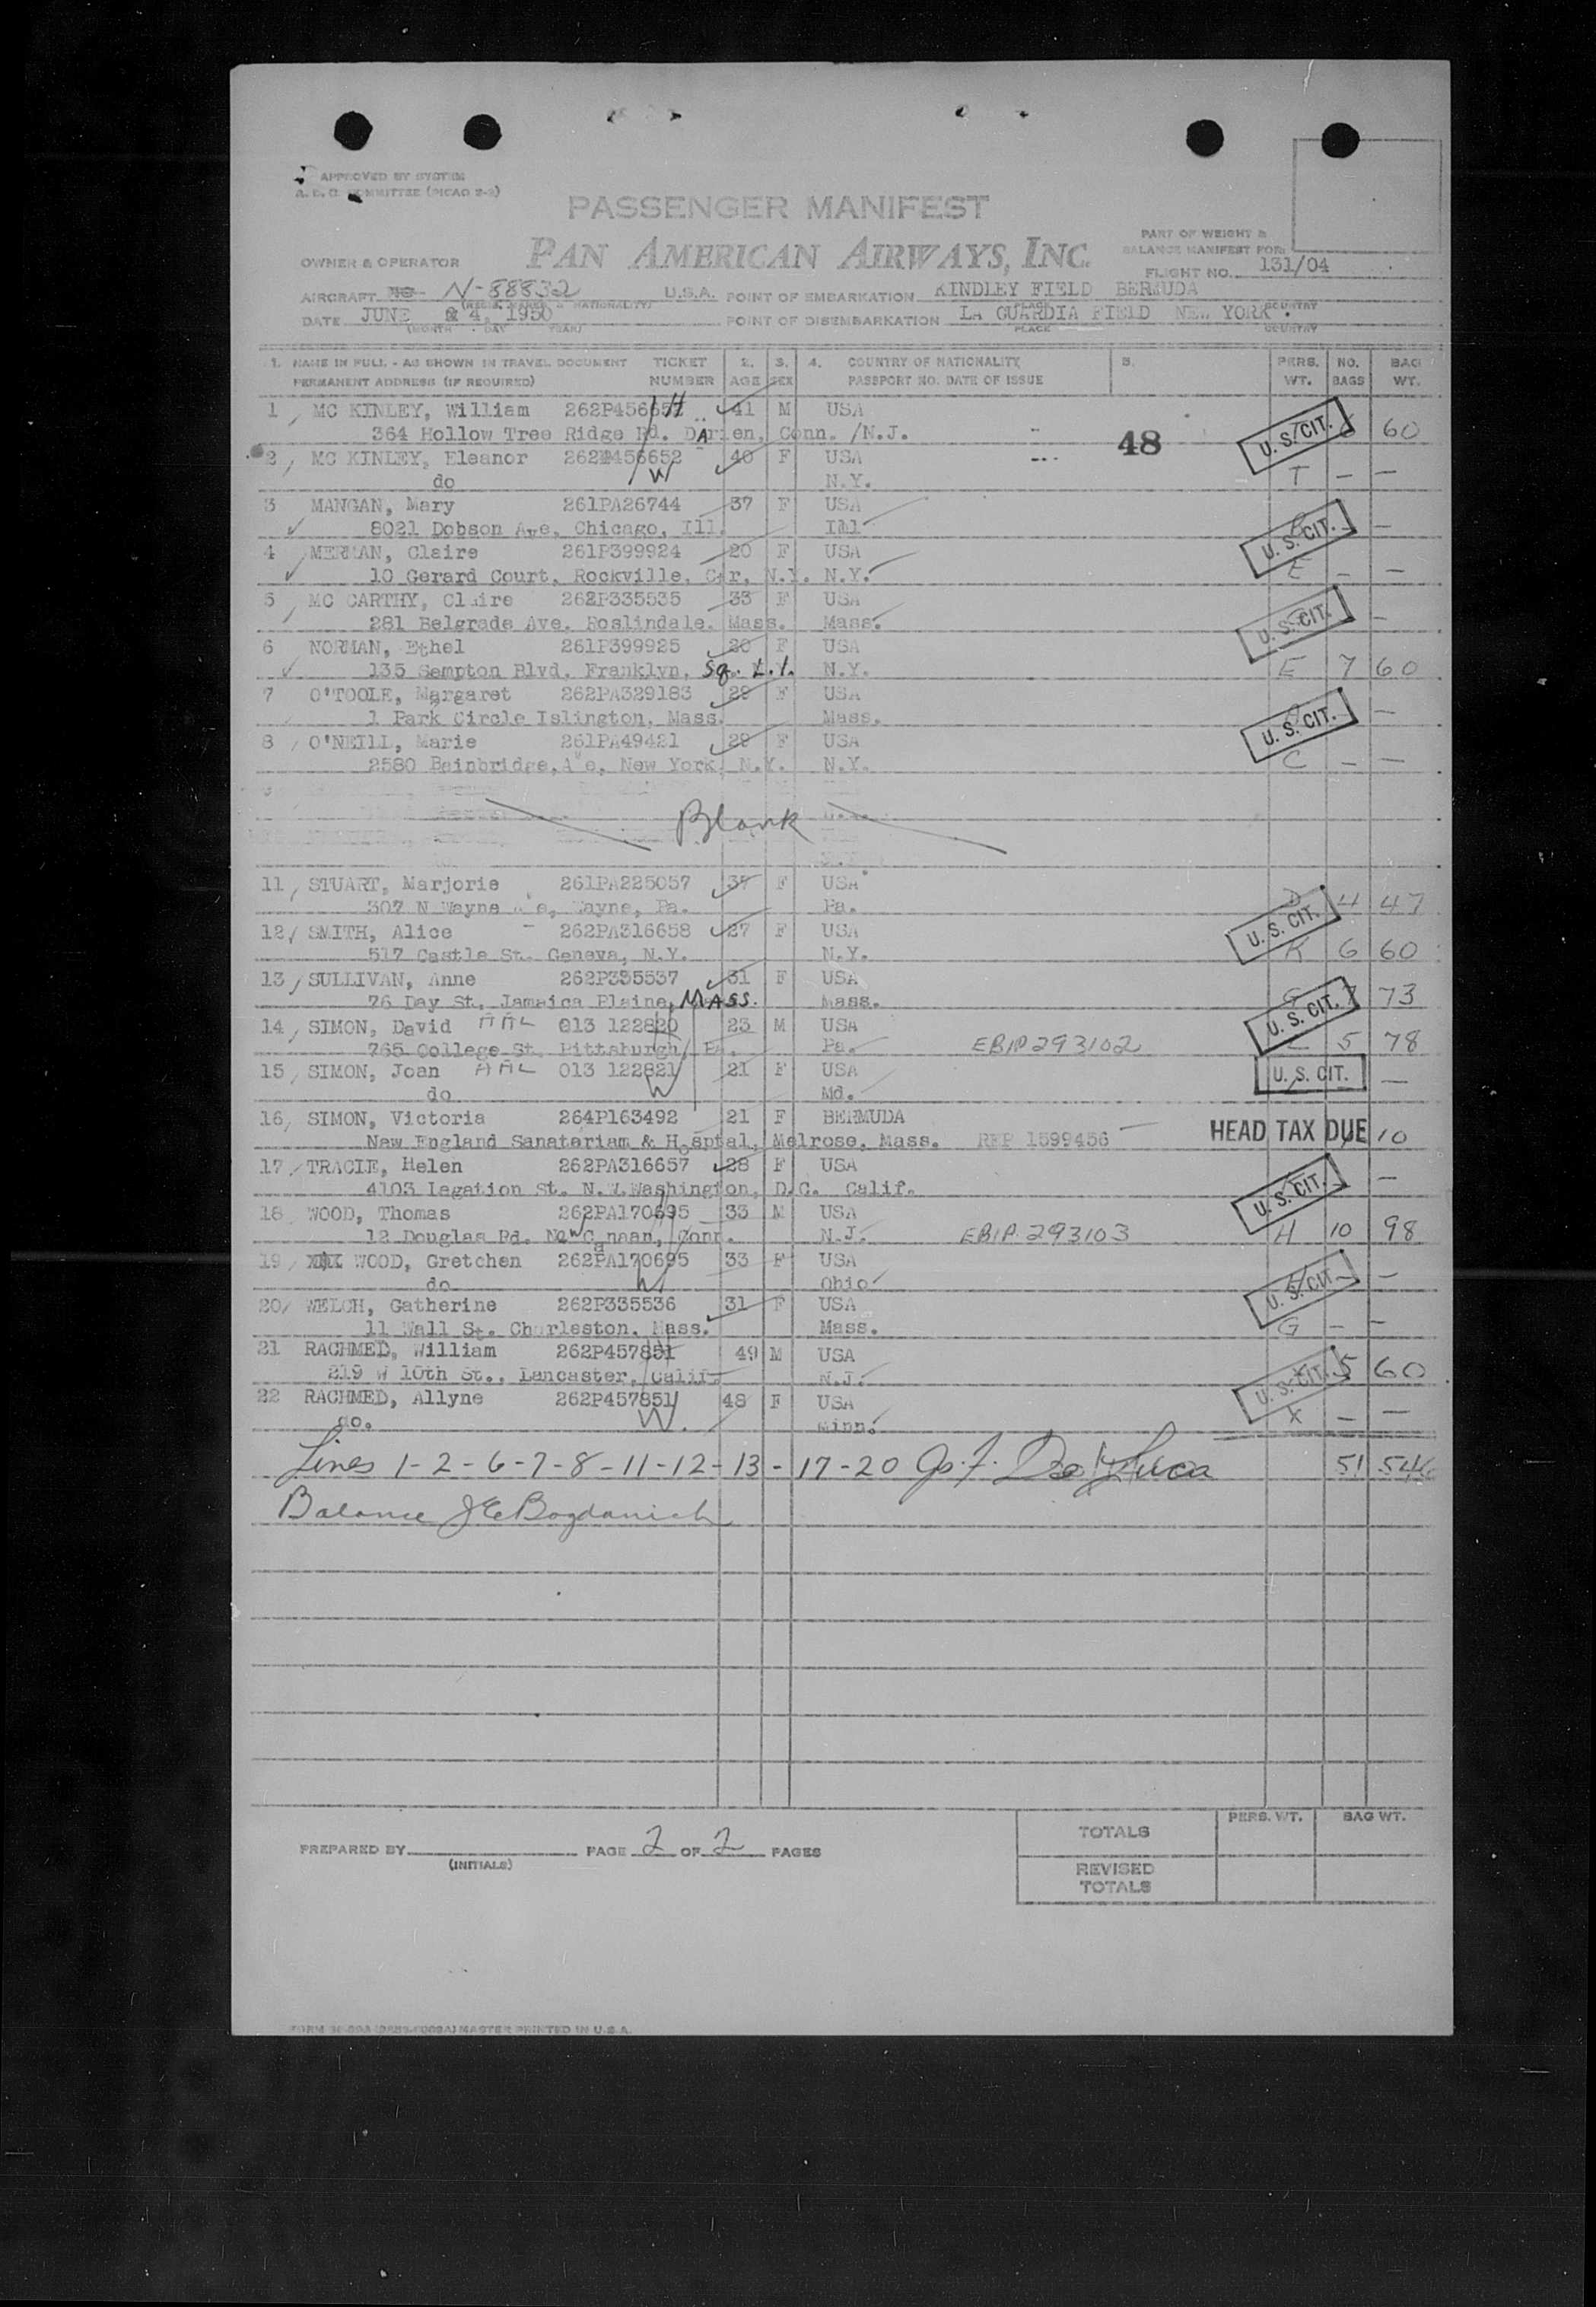 APPROVED BY SYSTEM
A. C. C. COMMITTEE (PICAO 2-2)
PASSENGER MANIFEST
PAN AMERICAN AIRWAYS, INC.
PART OF WEIGHT &
BALANCE MANIFEST FOR:
OWNER & OPERATOR
FLIGHT NO. 131/04
AIRCRAFT N-88832 U.S.A. POINT OF EMBARKATION KINDLEY FIELD BERMUDA
PLACE COUNTRY
DATE JUNE 24, 1950 POINT OF DISEMBARKATION LA GUARDIA FIELD NEW YORK
(MONTH DAY YEAR) PLACE COUNTRY
1. NAME IN FULL - AS SHOWN IN TRAVEL DOCUMENT TICKET 2. 3. 4. COUNTRY OF NATIONALITY 5. PERS. NO. BAG
PERMANENT ADDRESS (IF REQUIRED) NUMBER AGE SEX PASSPORT NO. DATE OF ISSUE WT. BAGS WT.
1 MC KINLEY, William 262P456651 H 41 M USA
364 Hollow Tree Ridge Rd. DArien, Conn. /N.J. 48 U. S. CIT. 60
2 MC KINLEY, Eleanor 262P456652 W 40 F USA
do N.Y. T - -
3 MANGAN, Mary 261PA26744 37 F USA
8021 Dobson Ave, Chicago, Ill. Ill U. S. CIT. -
4 MERMAN, Claire 261P399924 20 F USA
10 Gerard Court, Rockville, Ctr, N.Y. N.Y. E - -
5 MC CARTHY, Claire 262P335535 33 F USA
281 Belgrade Ave. Roslindale. Mass. Mass. U. S. CIT. -
6 NORMAN, Ethel 261P399925 20 F USA
135 Sempton Blvd, Franklyn, Sq. L.I. N.Y. E 7 60
7 O'TOOLE, Margaret 262PA329183 29 F USA
1 Park Circle Islington, Mass. Mass. U. S. CIT. -
8 O'NEILL, Marie 261PA49421 29 F USA
2580 Bainbridge, Ave, New York, N.Y. N.Y. C - -
Blank
11 STUART, Marjorie 261PA225057 37 F USA
307 N Wayne Ave, Wayne, Pa. Pa. D 4 47
12 SMITH, Alice 262PA316658 27 F USA U. S. CIT.
517 Castle St. Geneva, N.Y. N.Y. K 6 60
13 SULLIVAN, Anne 262P335537 31 F USA
76 Day St, Jamaica Plaine, MASS. Mass. G 7 73
14 SIMON, David AAL 013 122820 23 M USA U. S. CIT.
765 College St. Pittsburgh, Pa. Pa. EBIP 293102 5 78
15 SIMON, Joan AAL 013 122821 W 21 F USA U. S. CIT.
do Md. -
16 SIMON, Victoria 264P163492 21 F BERMUDA
New England Sanatariam & Hosptal, Melrose, Mass. REP 1599456 HEAD TAX DUE 10
17 TRACIE, Helen 262PA316657 28 F USA
4103 Legation St. N.W. Washington, D.C. Calif. U. S. CIT. -
18 WOOD, Thomas 262PA170695 33 M USA
12 Douglas Rd. New Canaan, Conn. N.J. EBIP 293103 H 10 98
19 WOOD, Gretchen 262PA170695 W 33 F USA
do Ohio U. S. CIT. -
20 WELCH, Gatherine 262P335536 31 F USA
11 Wall St. Charleston. Mass. Mass. G - -
21 RACHMED, William 262P457851 49 M USA
219 W 10th St., Lancaster, Calif. N.J. U. S. CIT. 5 60
22 RACHMED, Allyne 262P457851 W 48 F USA
do. Minn. X - -
Lines 1-2-6-7-8-11-12-13-17-20 Jo. F. De Luca 51 546
Balance J E Bogdanich
PREPARED BY PAGE 2 OF 2 PAGES
(INITIALS)
PERS. WT. BAG WT.
TOTALS
REVISED
TOTALS
MASTER PRINTED IN U.S.A.